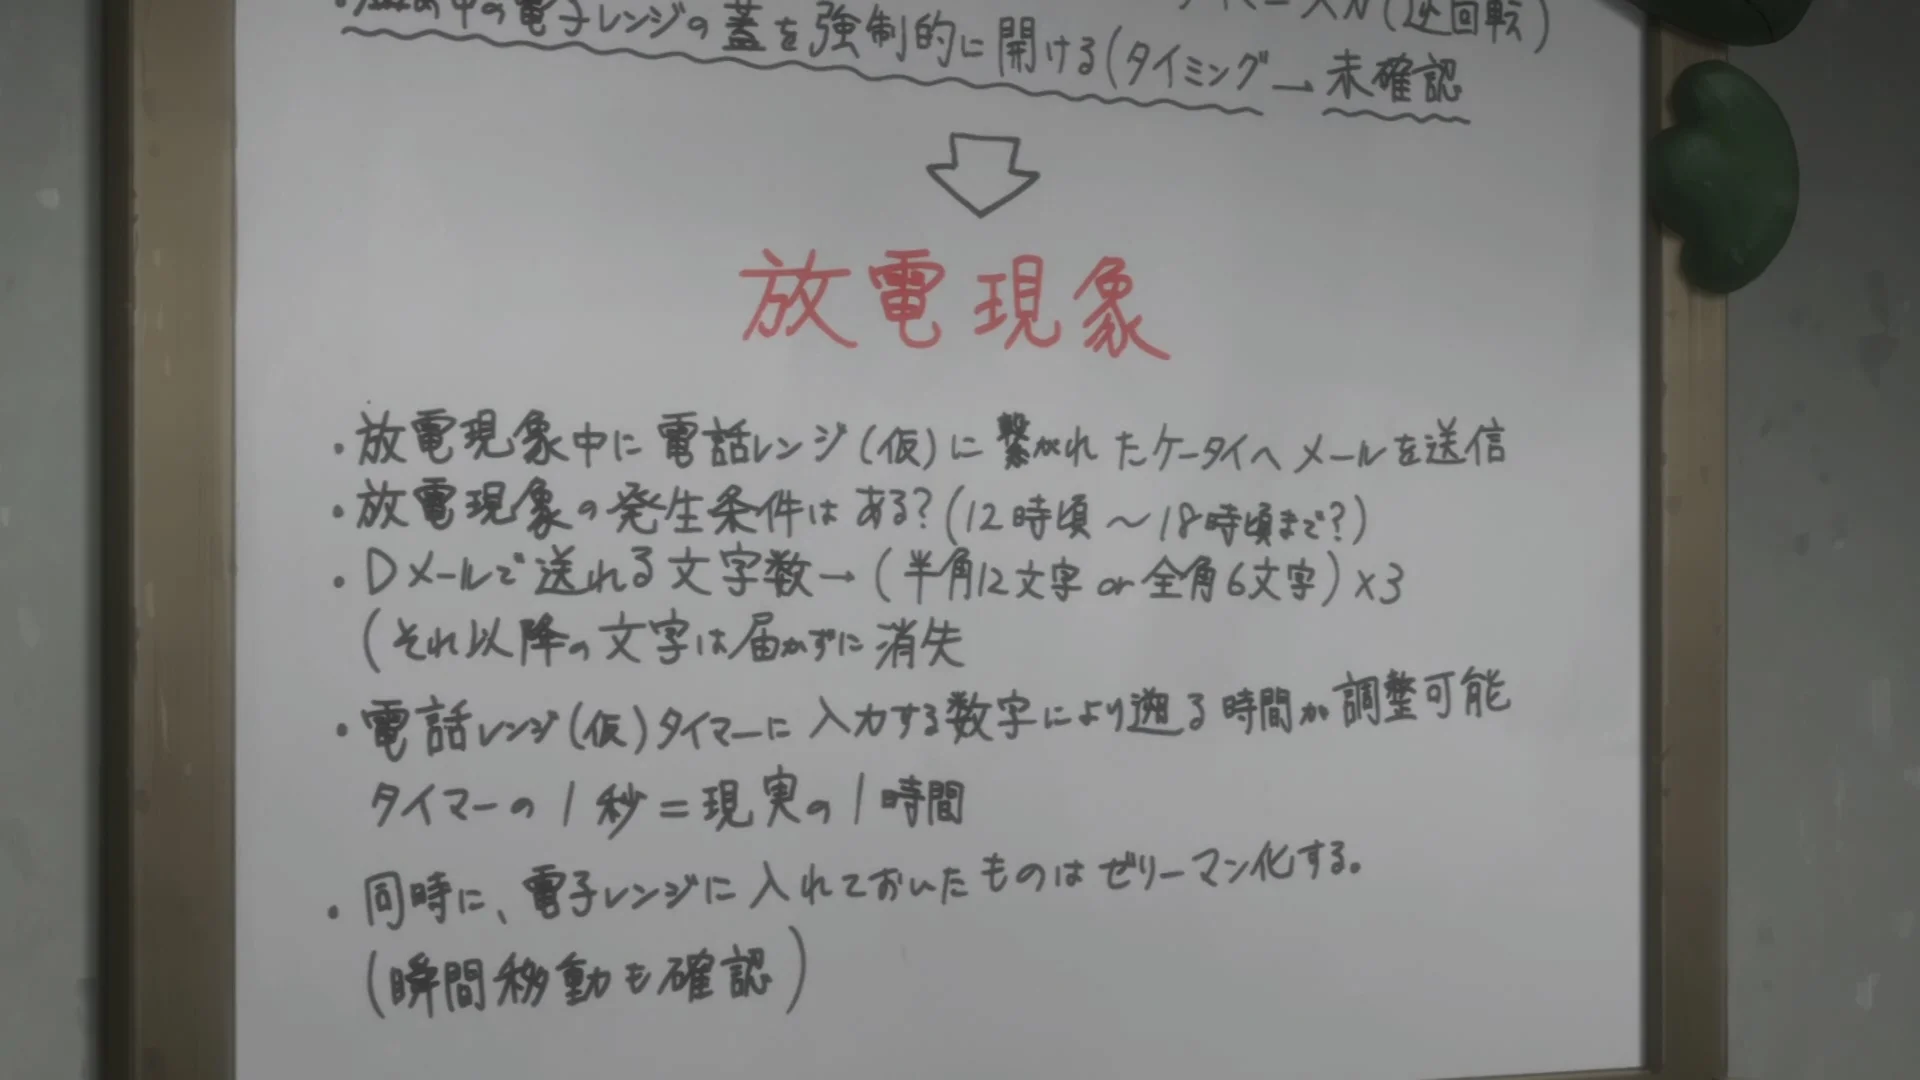 中の電子レンジの蓋を強制的に開ける(タイミング→未確認
(逆回転)
放電現象
・放電現象中に電話レンジ(仮)に繋がれたケータイへメールを送信
・放電現象の発生条件はある?(12時頃〜18時頃まで?)
・Dメールで送れる文字数→(半角12文字 or 全角6文字)×3
(それ以降の文字は届かずに消失
・電話レンジ(仮)タイマーに入力する数字により遡る時間が調整可能
タイマーの1秒=現実の1時間
・同時に、電子レンジに入れておいたものはゼリーマン化する。
(瞬間移動も確認)